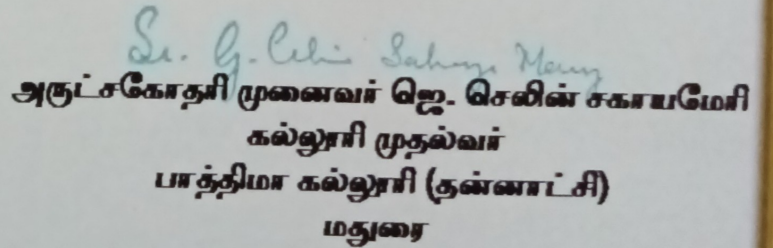 Sr. G. Celin Sahaya Mary
அருட்சகோதரி முனைவர் ஜெ. செலின் சகாயமேரி
கல்லூரி முதல்வர்
பாத்திமா கல்லூரி (தன்னாட்சி)
மதுரை